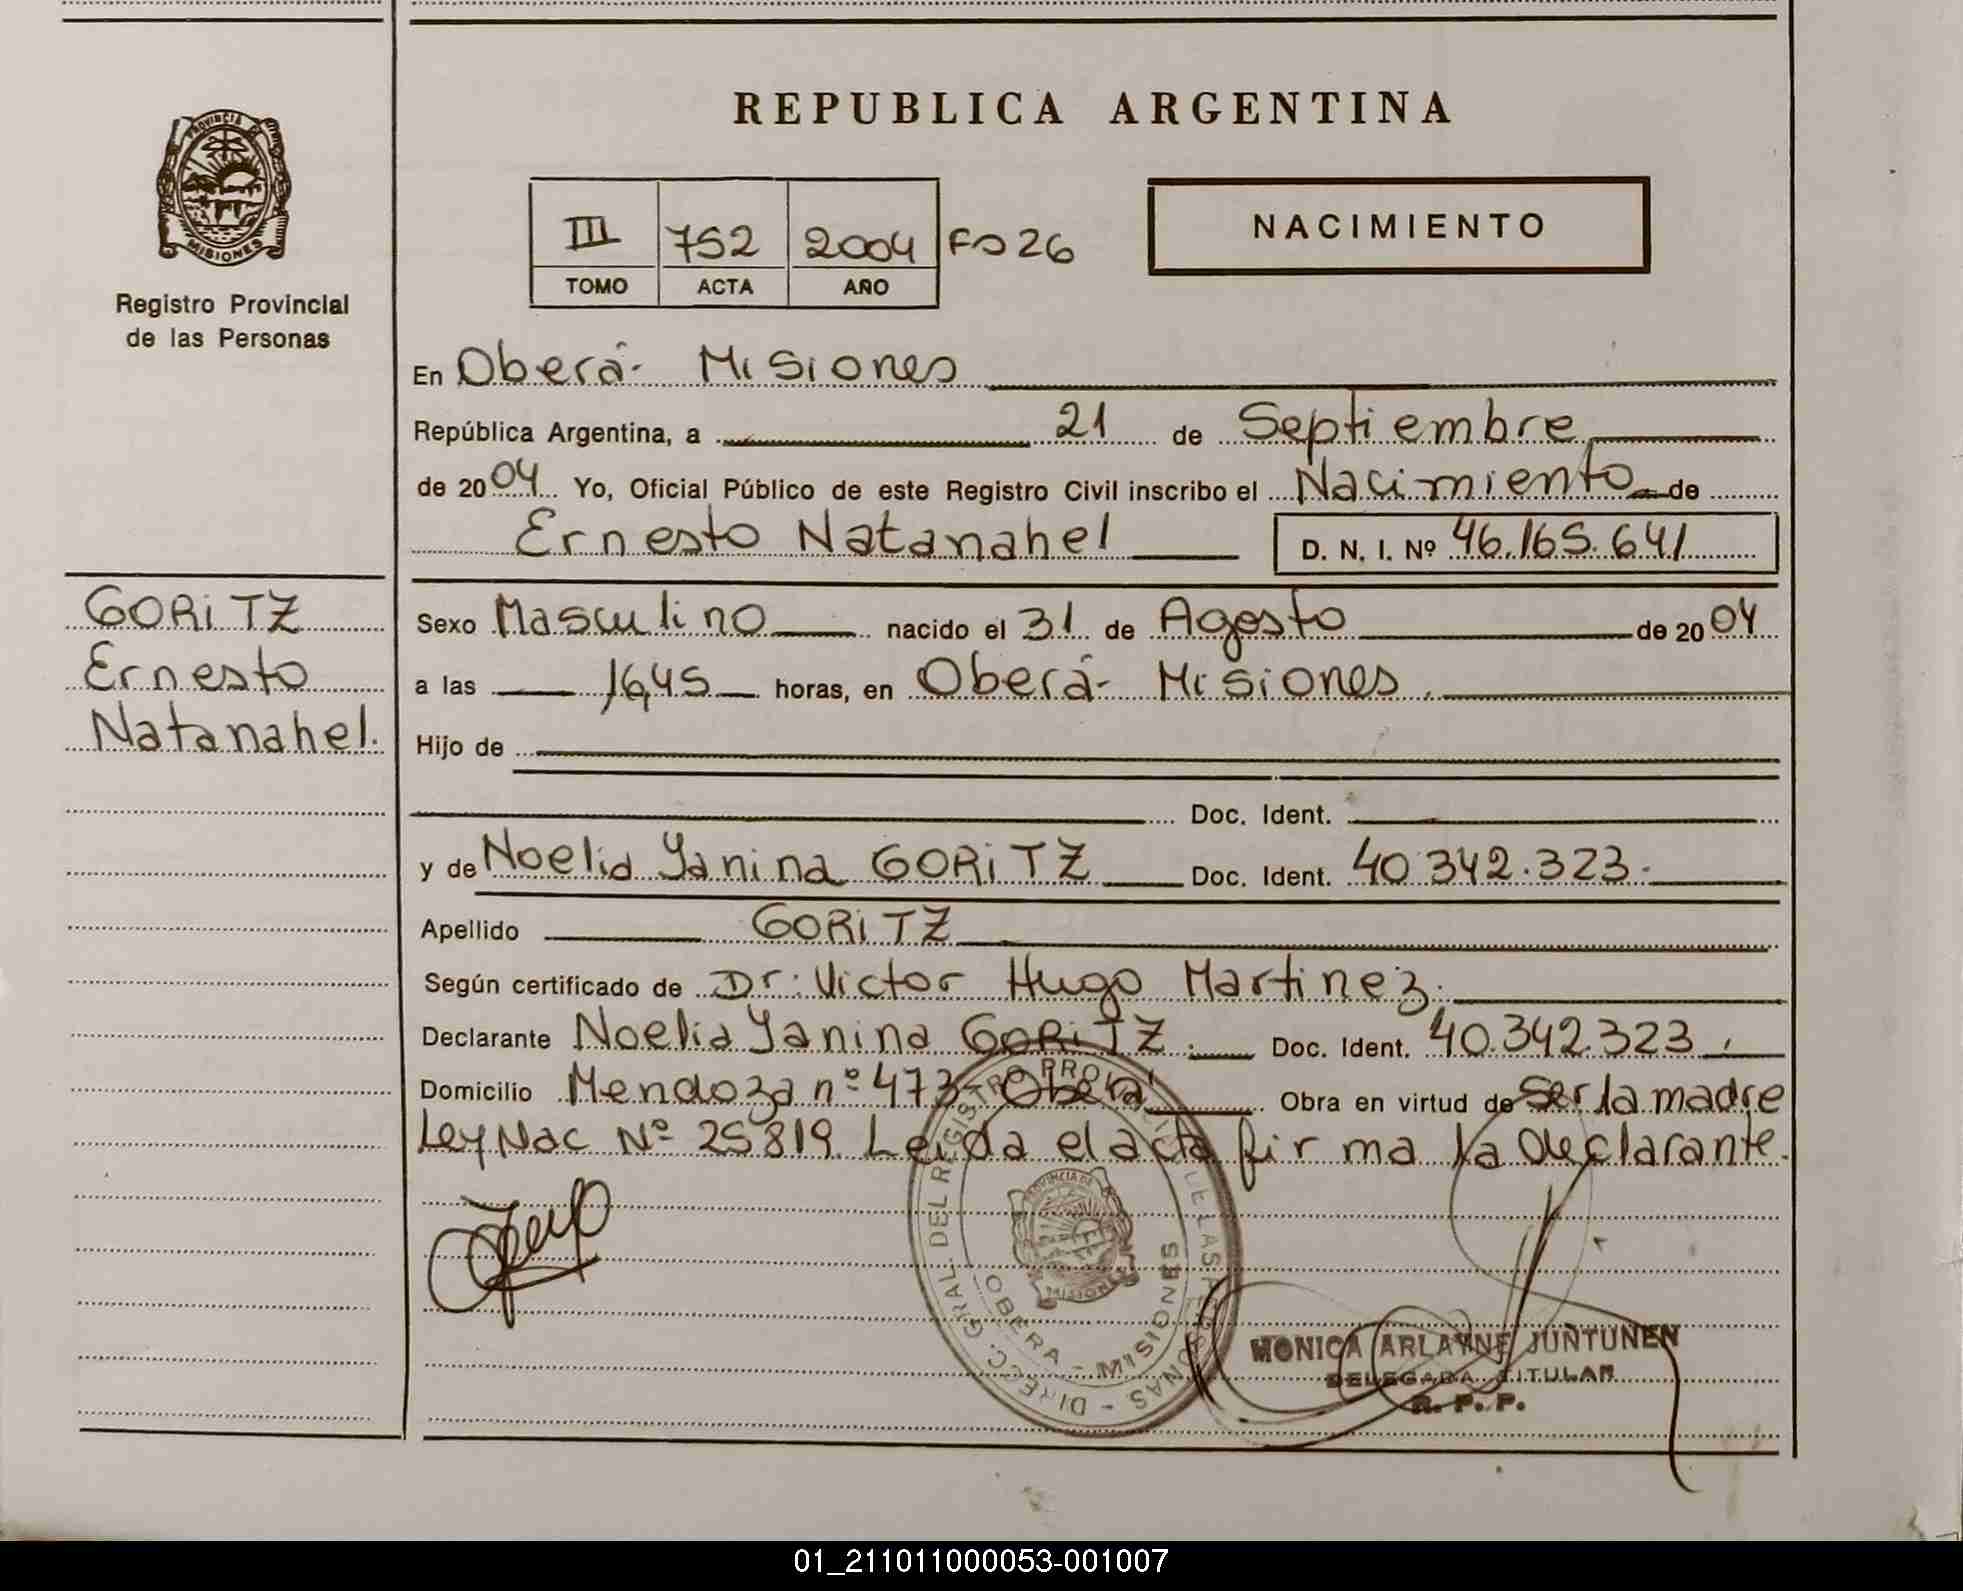 REPUBLICA ARGENTINA
PROVINCIA DE
MISIONES
Registro Provincial
de las Personas
III 752 2004 Fo 26
TOMO ACTA AÑO
NACIMIENTO
En Oberá- Misiones
República Argentina, a 21 de Septiembre
de 2004 Yo, Oficial Público de este Registro Civil inscribo el Nacimiento de
Ernesto Natanahel D. N. I. Nº 46.165.641
GORITZ
Ernesto
Natanahel.
Sexo Masculino nacido el 31 de Agosto de 2004
a las 16,45 horas, en Oberá- Misiones.
Hijo de
Doc. Ident.
y de Noelia Yanina GORITZ Doc. Ident. 40.342.323.
Apellido GORITZ
Según certificado de Dr. Victor Hugo Martinez.
Declarante Noelia Yanina GORITZ. Doc. Ident. 40.342.323.
Domicilio Mendoza nº 473- Oberá Obra en virtud de Ser la madre
Ley Nac Nº 25819. Leida el acta firma la declarante.
DIRECC. GRAL. DEL REGISTRO PROVINCIAL DE LAS PERSONAS -
PROVINCIA DE
MISIONES
OBERA - MISIONES
MONICA ARLAYNE JUNTUNEN
DELEGADA TITULAR
R. P. P.
01_211011000053-001007